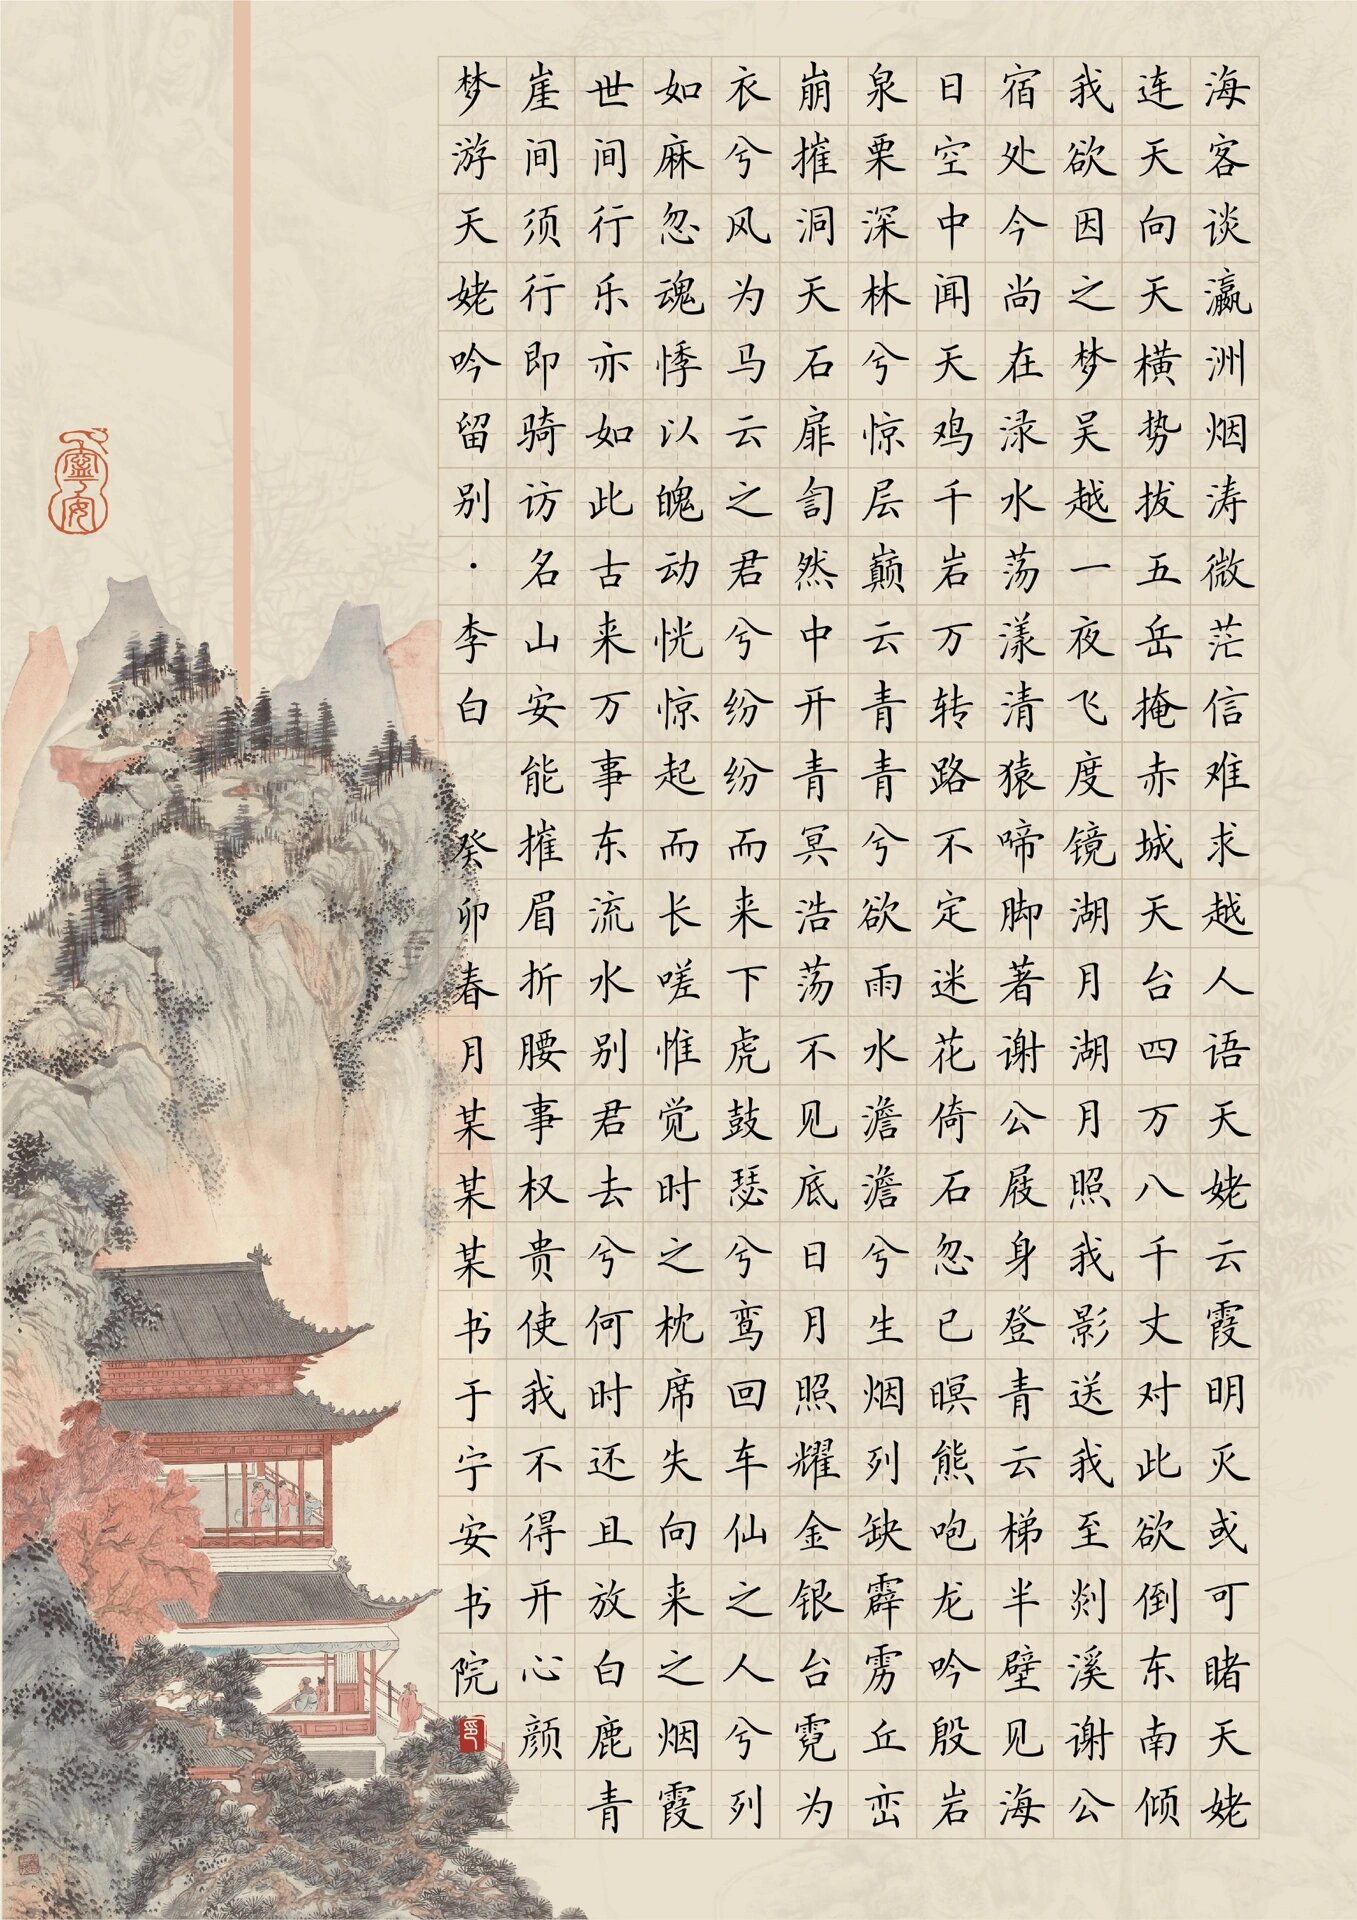 海客谈瀛洲烟涛微茫信难求越人语天姥云霞明灭或可睹天姥
连天向天横势拔五岳掩赤城天台四万八千丈对此欲倒东南倾
我欲因之梦吴越一夜飞度镜湖月湖月照我影送我至剡溪谢公
宿处今尚在渌水荡漾清猿啼脚著谢公屐身登青云梯半壁见海
日空中闻天鸡千岩万转路不定迷花倚石忽已暝熊咆龙吟殷岩
泉栗深林兮惊层巅云青青兮欲雨水澹澹兮生烟列缺霹雳丘峦
崩摧洞天石扉訇然中开青冥浩荡不见底日月照耀金银台霓为
衣兮风为马云之君兮纷纷而来下虎鼓瑟兮鸾回车仙之人兮列
如麻忽魂悸以魄动恍惊起而长嗟惟觉时之枕席失向来之烟霞
世间行乐亦如此古来万事东流水别君去兮何时还且放白鹿青
崖间须行即骑访名山安能摧眉折腰事权贵使我不得开心颜
梦游天姥吟留别·李白 癸卯春月某某某书于宁安书院
印
宁安